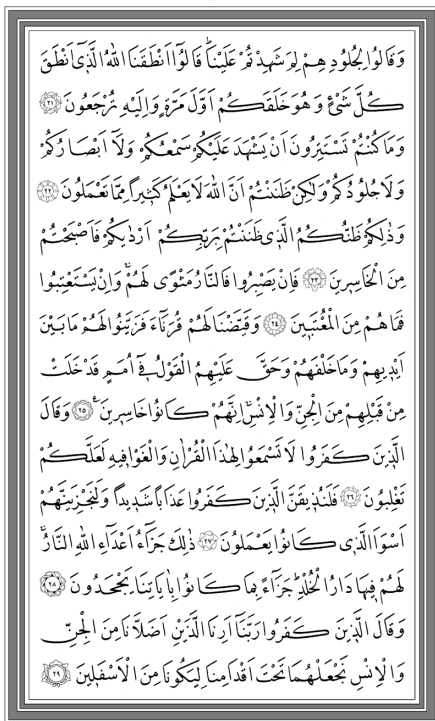 وَقَالُوا لِجُلُودِهِمْ لِمَ شَهِدْتُمْ عَلَيْنَاۜ قَالُٓوا اَنْطَقَنَا اللّٰهُ الَّذ۪ٓي اَنْطَقَ
كُلَّ شَيْءٍ وَهُوَ خَلَقَكُمْ اَوَّلَ مَرَّةٍ وَاِلَيْهِ تُرْجَعُونَ ﴿٢١﴾
وَمَا كُنْتُمْ تَسْتَتِرُونَ اَنْ يَشْهَدَ عَلَيْكُمْ سَمْعُكُمْ وَلَٓا اَبْصَارُكُمْ
وَلَا جُلُودُكُمْ وَلٰكِنْ ظَنَنْتُمْ اَنَّ اللّٰهَ لَا يَعْلَمُ كَث۪يراً مِمَّا تَعْمَلُونَ ﴿٢٢﴾
وَذٰلِكُمْ ظَنُّكُمُ الَّذ۪ي ظَنَنْتُمْ بِرَبِّكُمْ اَرْدٰيكُمْ فَاَصْبَحْتُمْ
مِنَ الْخَاسِر۪ينَ ﴿٢٣﴾ فَاِنْ يَصْبِرُوا فَالنَّارُ مَثْوًى لَهُمْۚ وَاِنْ يَسْتَعْتِبُوا
فَمَا هُمْ مِنَ الْمُعْتَب۪ينَ ﴿٢٤﴾ وَقَيَّضْنَا لَهُمْ قُرَنَٓاءَ فَزَيَّنُوا لَهُمْ مَا بَيْنَ
اَيْد۪يهِمْ وَمَا خَلْفَهُمْ وَحَقَّ عَلَيْهِمُ الْقَوْلُ ف۪ٓي اُمَمٍ قَدْ خَلَتْ
مِنْ قَبْلِهِمْ مِنَ الْجِنِّ وَالْاِنْسِۚ اِنَّهُمْ كَانُوا خَاسِر۪ينَ۟ ﴿٢٥﴾ وَقَالَ
الَّذ۪ينَ كَفَرُوا لَا تَسْمَعُوا لِهٰذَا الْقُرْاٰنِ وَالْغَوْا ف۪يهِ لَعَلَّكُمْ
تَغْلِبُونَ ﴿٢٦﴾ فَلَنُذ۪يقَنَّ الَّذ۪ينَ كَفَرُوا عَذَاباً شَد۪يداً وَلَنَجْزِيَنَّهُمْ
اَسْوَاَ الَّذ۪ي كَانُوا يَعْمَلُونَ ﴿٢٧﴾ ذٰلِكَ جَزَٓاءُ اَعْدَٓاءِ اللّٰهِ النَّارُۚ
لَهُمْ ف۪يهَا دَارُ الْخُلْدِۜ جَزَٓاءً بِمَا كَانُوا بِاٰيَاتِنَا يَجْحَدُونَ ﴿٢٨﴾
وَقَالَ الَّذ۪ينَ كَفَرُوا رَبَّنَٓا اَرِنَا الَّذَيْنِ اَضَلَّانَا مِنَ الْجِنِّ
وَالْاِنْسِ نَجْعَلْهُمَا تَحْتَ اَقْدَامِنَا لِيَكُونَا مِنَ الْاَسْفَل۪ينَ ﴿٢٩﴾